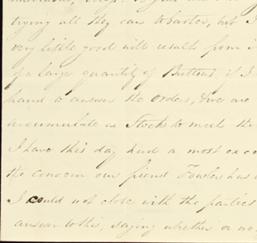 trying all they can to
very little good will results from
of a large quantity of Buttons, if I
hand to answer the Orders, & we are
accumulate as Stock to meet the
I have this day had a most
the concern our friend Fowler has
I could not close with the parties
answer to this, saying whether or no